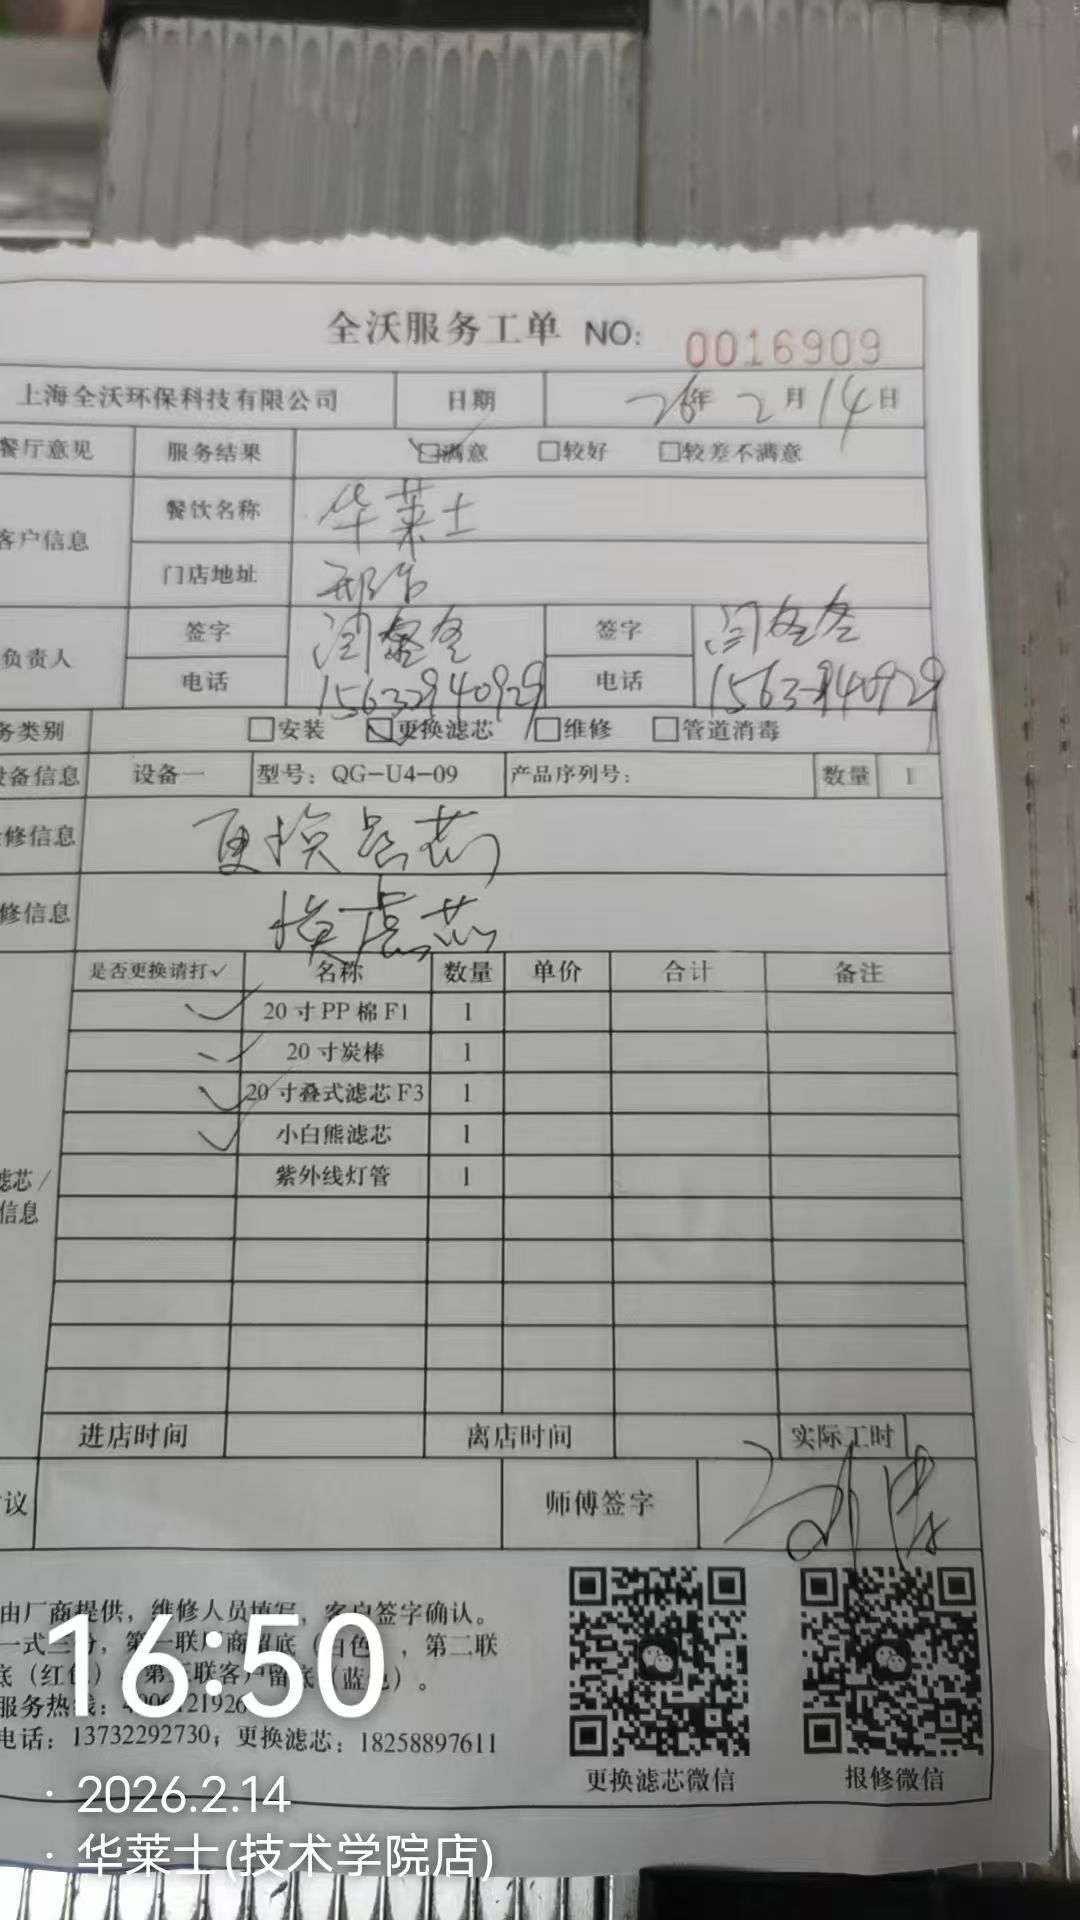 全沃服务工单 NO: 0016909
上海全沃环保科技有限公司 日期 26年 2月14日
餐厅意见 服务结果 满意 较好 较差不满意
客户信息 餐饮名称 华莱士
门店地址 邢台
负责人 签字 闫冬冬 签字 闫冬冬
电话 15632940929 电话 15632940929
务类别 安装 更换滤芯 维修 管道消毒
设备信息 设备一 型号：QG-U4-09 产品序列号： 数量 1
修信息 更换滤芯
修信息 换滤芯
是否更换请打✓ 名称 数量 单价 合计 备注
✓ 20寸PP棉F1 1
✓ 20寸炭棒 1
✓ 20寸叠式滤芯F3 1
✓ 小白熊滤芯 1
滤芯/ 紫外线灯管 1
信息
进店时间 离店时间 实际工时
议 师傅签字
由厂商提供，维修人员填写，客户签字确认。
一式三份，第一联厂商留底（白色），第二联
底（红色），第三联客户留底（蓝色）。
服务热线：
电话：13732292730；更换滤芯：18258897611
更换滤芯微信 报修微信
16:50
2026.2.14
华莱士(技术学院店)